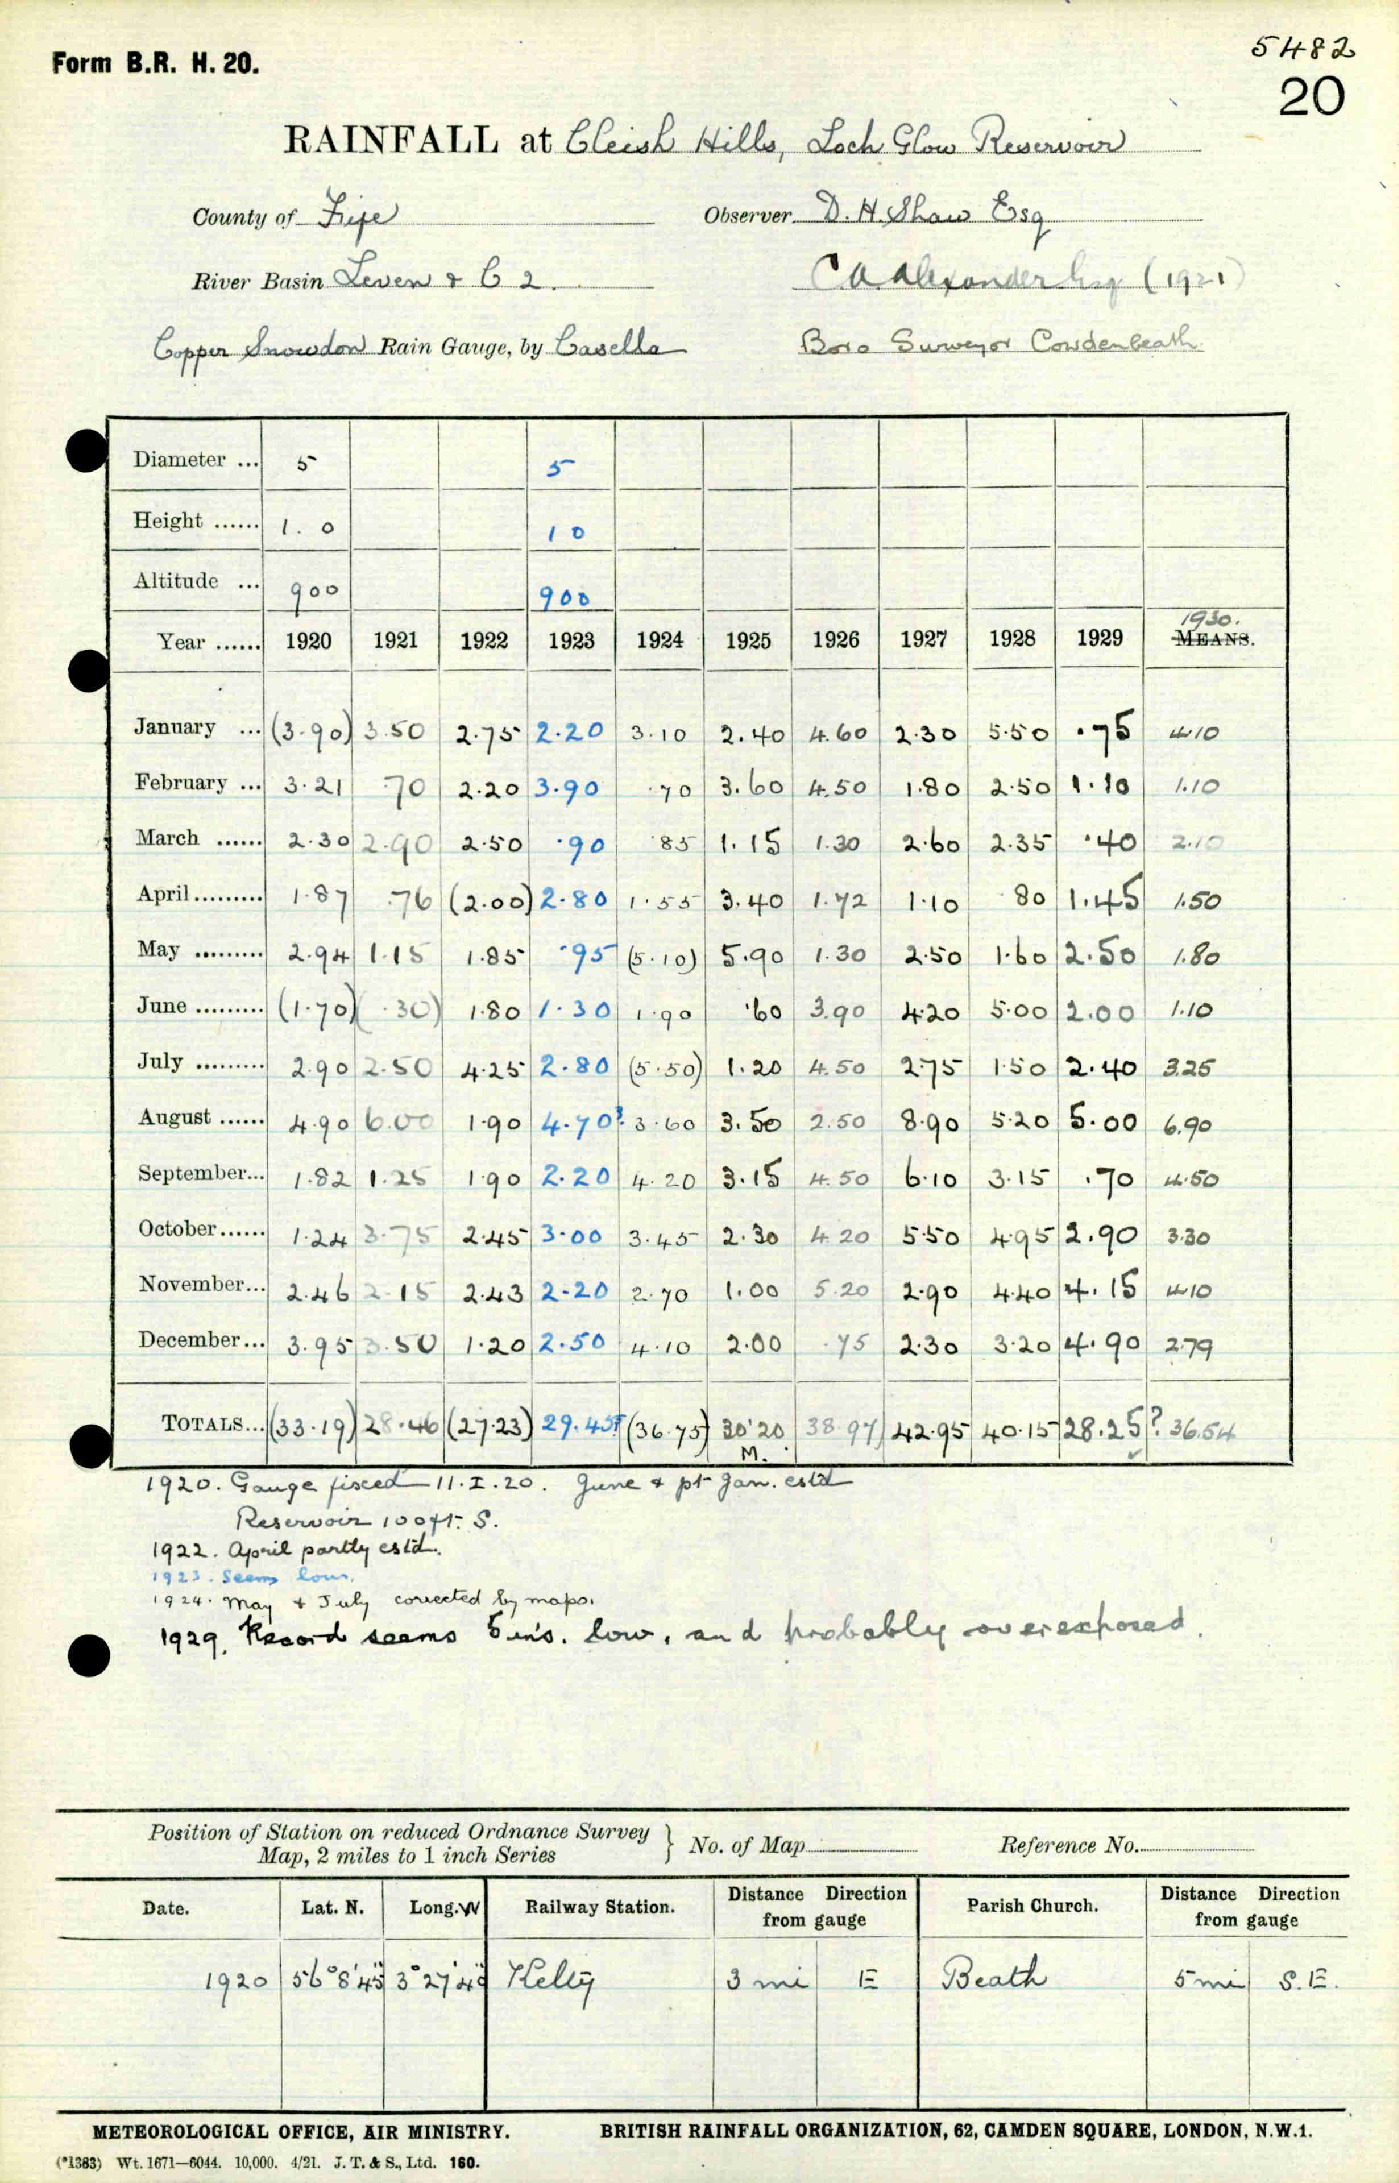 5482
Form B.R. H. 20.
20
RAINFALL at Cleish Hills, Loch Glow Reservoir
County of Fife Observer D. H. Shaw Esq
River Basin Leven & C 2. C A Alexander Esq (1921)
Copper Snowdon Rain Gauge, by Casella Boro Surveyor Cowdenbeath
Diameter ... 5 5
Height ...... 1. 0 1 0
Altitude ... 900 900
1930.
Year ...... 1920 1921 1922 1923 1924 1925 1926 1927 1928 1929 MEANS.
January ... (3.90) 3.50 2.75 2.20 3.10 2.40 4.60 2.30 5.50 .75 4.10
February ... 3.21 .70 2.20 3.90 .70 3.60 4.50 1.80 2.50 1.10 1.10
March ...... 2.30 2.90 2.50 .90 85 1.15 1.30 2.60 2.35 .40 2.10
April ......... 1.87 .76 (2.00) 2.80 1.55 3.40 1.72 1.10 80 1.45 1.50
May ......... 2.94 1.15 1.85 .95 (5.10) 5.90 1.30 2.50 1.60 2.50 1.80
June ......... (1.70) (.30) 1.80 1.30 1.90 .60 3.90 4.20 5.00 2.00 1.10
July ......... 2.90 2.50 4.25 2.80 (5.50) 1.20 4.50 2.75 1.50 2.40 3.25
August ...... 4.90 6.00 1.90 4.70? 3.60 3.50 2.50 8.90 5.20 5.00 6.90
September... 1.82 1.25 1.90 2.20 4.20 3.15 4.50 6.10 3.15 .70 4.50
October ...... 1.24 3.75 2.45 3.00 3.45 2.30 4.20 5.50 4.95 2.90 3.30
November... 2.46 2.15 2.43 2.20 2.70 1.00 5.20 2.90 4.40 4.15 4.10
December... 3.95 3.50 1.20 2.50 4.10 2.00 .75 2.30 3.20 4.90 2.79
TOTALS... (33.19) 28.46 (27.23) 29.45? (36.75) 30.20 38.97) 42.95 40.15 28.25? 36.54
M.
1920. Gauge fixed 11.I.20. June & pt Jan. est'd
Reservoir 100ft. S.
1922. April partly est'd.
1923. Seems low.
1924. May & July corrected by maps.
1929. Record seems 5 ins. low, and probably overexposed.
Position of Station on reduced Ordnance Survey
Map, 2 miles to 1 inch Series } No. of Map Reference No.
Date. Lat. N. Long. W Railway Station. Distance Direction from gauge Parish Church. Distance Direction from gauge
1920 56°8'45" 3°27'40" Kelty 3 mi E Beath 5 mi S.E.
METEOROLOGICAL OFFICE, AIR MINISTRY. BRITISH RAINFALL ORGANIZATION, 62, CAMDEN SQUARE, LONDON, N.W.1.
(*1383) Wt. 1671—6044. 10,000. 4/21. J. T. & S., Ltd. 160.